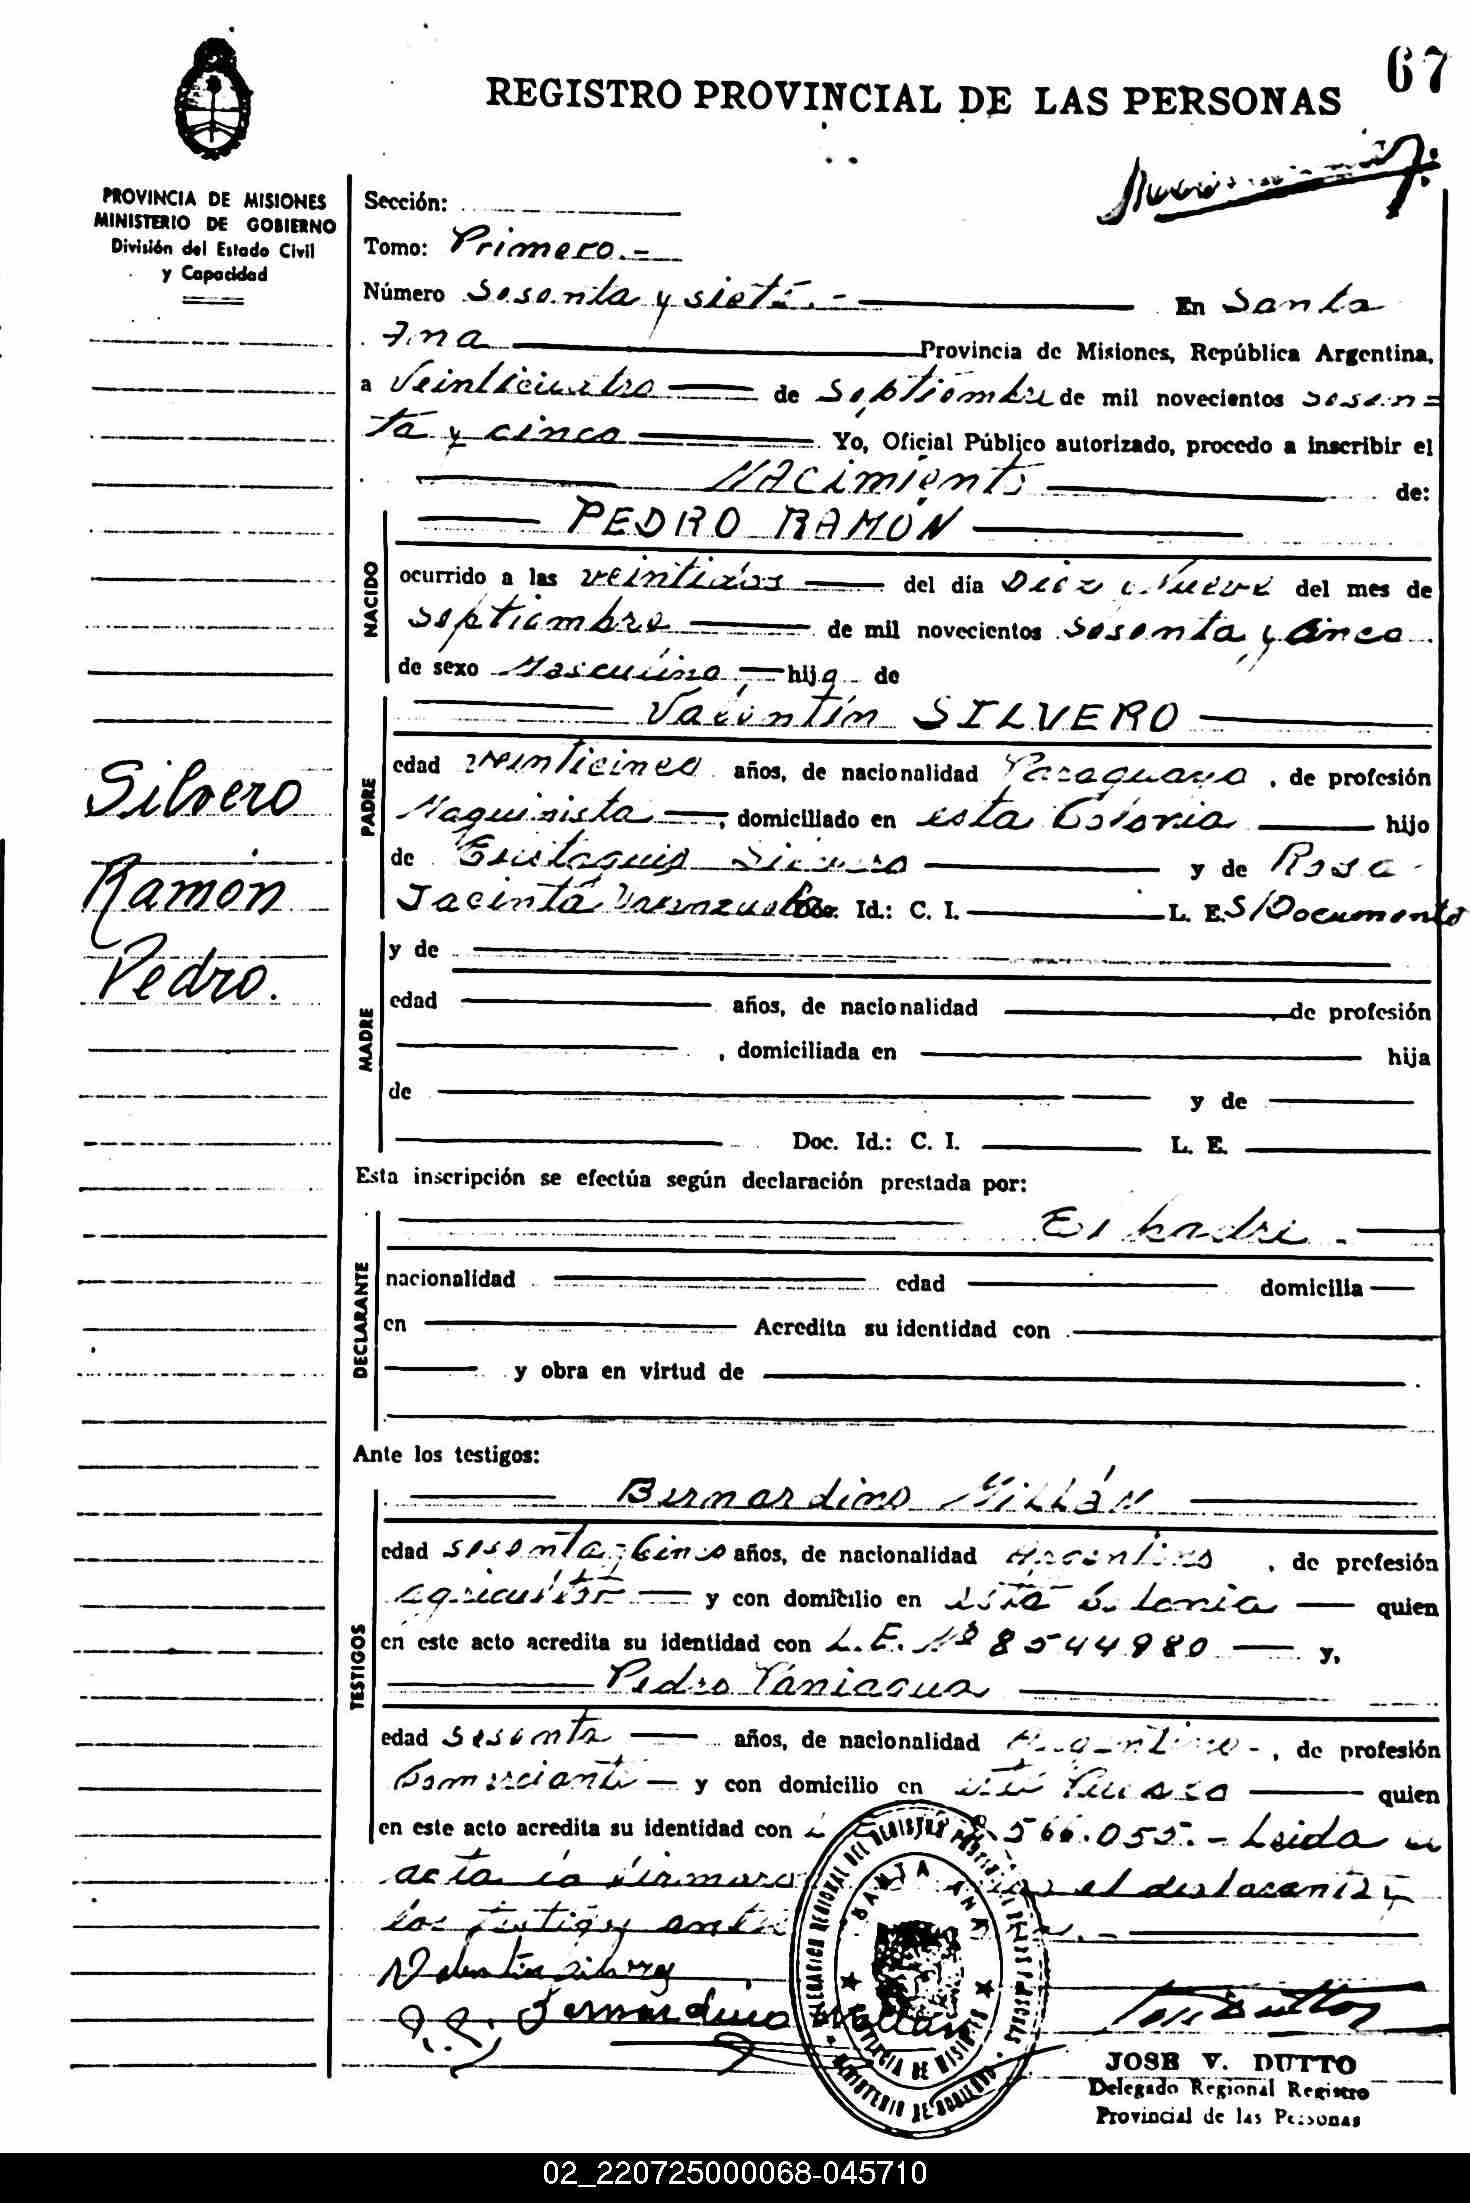 67
REGISTRO PROVINCIAL DE LAS PERSONAS
PROVINCIA DE MISIONES
MINISTERIO DE GOBIERNO
División del Estado Civil
y Capacidad
Sección:
Tomo: Primero.-
Número Sesenta y siete.- En Santa
Ana Provincia de Misiones, República Argentina,
a Veinticuatro de Septiembre de mil novecientos sesen=
ta y cinco Yo, Oficial Público autorizado, procedo a inscribir el
Nacimiento de:
PEDRO RAMÓN
NACIDO
ocurrido a las veintidos del día Diez y Nueve del mes de
Septiembre de mil novecientos Sesenta y Cinco
de sexo Masculino hijo de
Valentín SILVERO
PADRE
edad veinticinco años, de nacionalidad Paraguaya, de profesión
Maquinista, domiciliado en esta Colonia hijo
de Eustaquio Silvero y de Rosa
Jacinta Doc. Id.: C. I. L. E. S/Documento
Silvero
Ramón
Pedro.
MADRE
y de
edad años, de nacionalidad de profesión
, domiciliada en hija
de y de
Doc. Id.: C. I. L. E.
Esta inscripción se efectúa según declaración prestada por:
El padre.-
DECLARANTE
nacionalidad edad domicilia
en Acredita su identidad con
y obra en virtud de
Ante los testigos:
Bernardino Millán
TESTIGOS
edad sesenta y Cinco años, de nacionalidad Argentino, de profesión
agricultor y con domicilio en esta Colonia quien
en este acto acredita su identidad con L.E. Nº 8544980 y,
Pedro Paniagua
edad Sesenta años, de nacionalidad Argentino-, de profesión
Comerciante y con domicilio en este Pueblo quien
en este acto acredita su identidad con L E 566.055.- Leida el
acta la firmaron el declarante y
los testigos ante
Valentin Silvero
Bernardino Millan
DELEGACION REGIONAL DEL REGISTRO PROVINCIAL DE LAS PERSONAS
SANTA ANA
PROVINCIA DE MISIONES
MINISTERIO DE GOBIERNO
Jose Dutto
JOSE V. DUTTO
Delegado Regional Registro
Provincial de las Personas
02_220725000068-045710